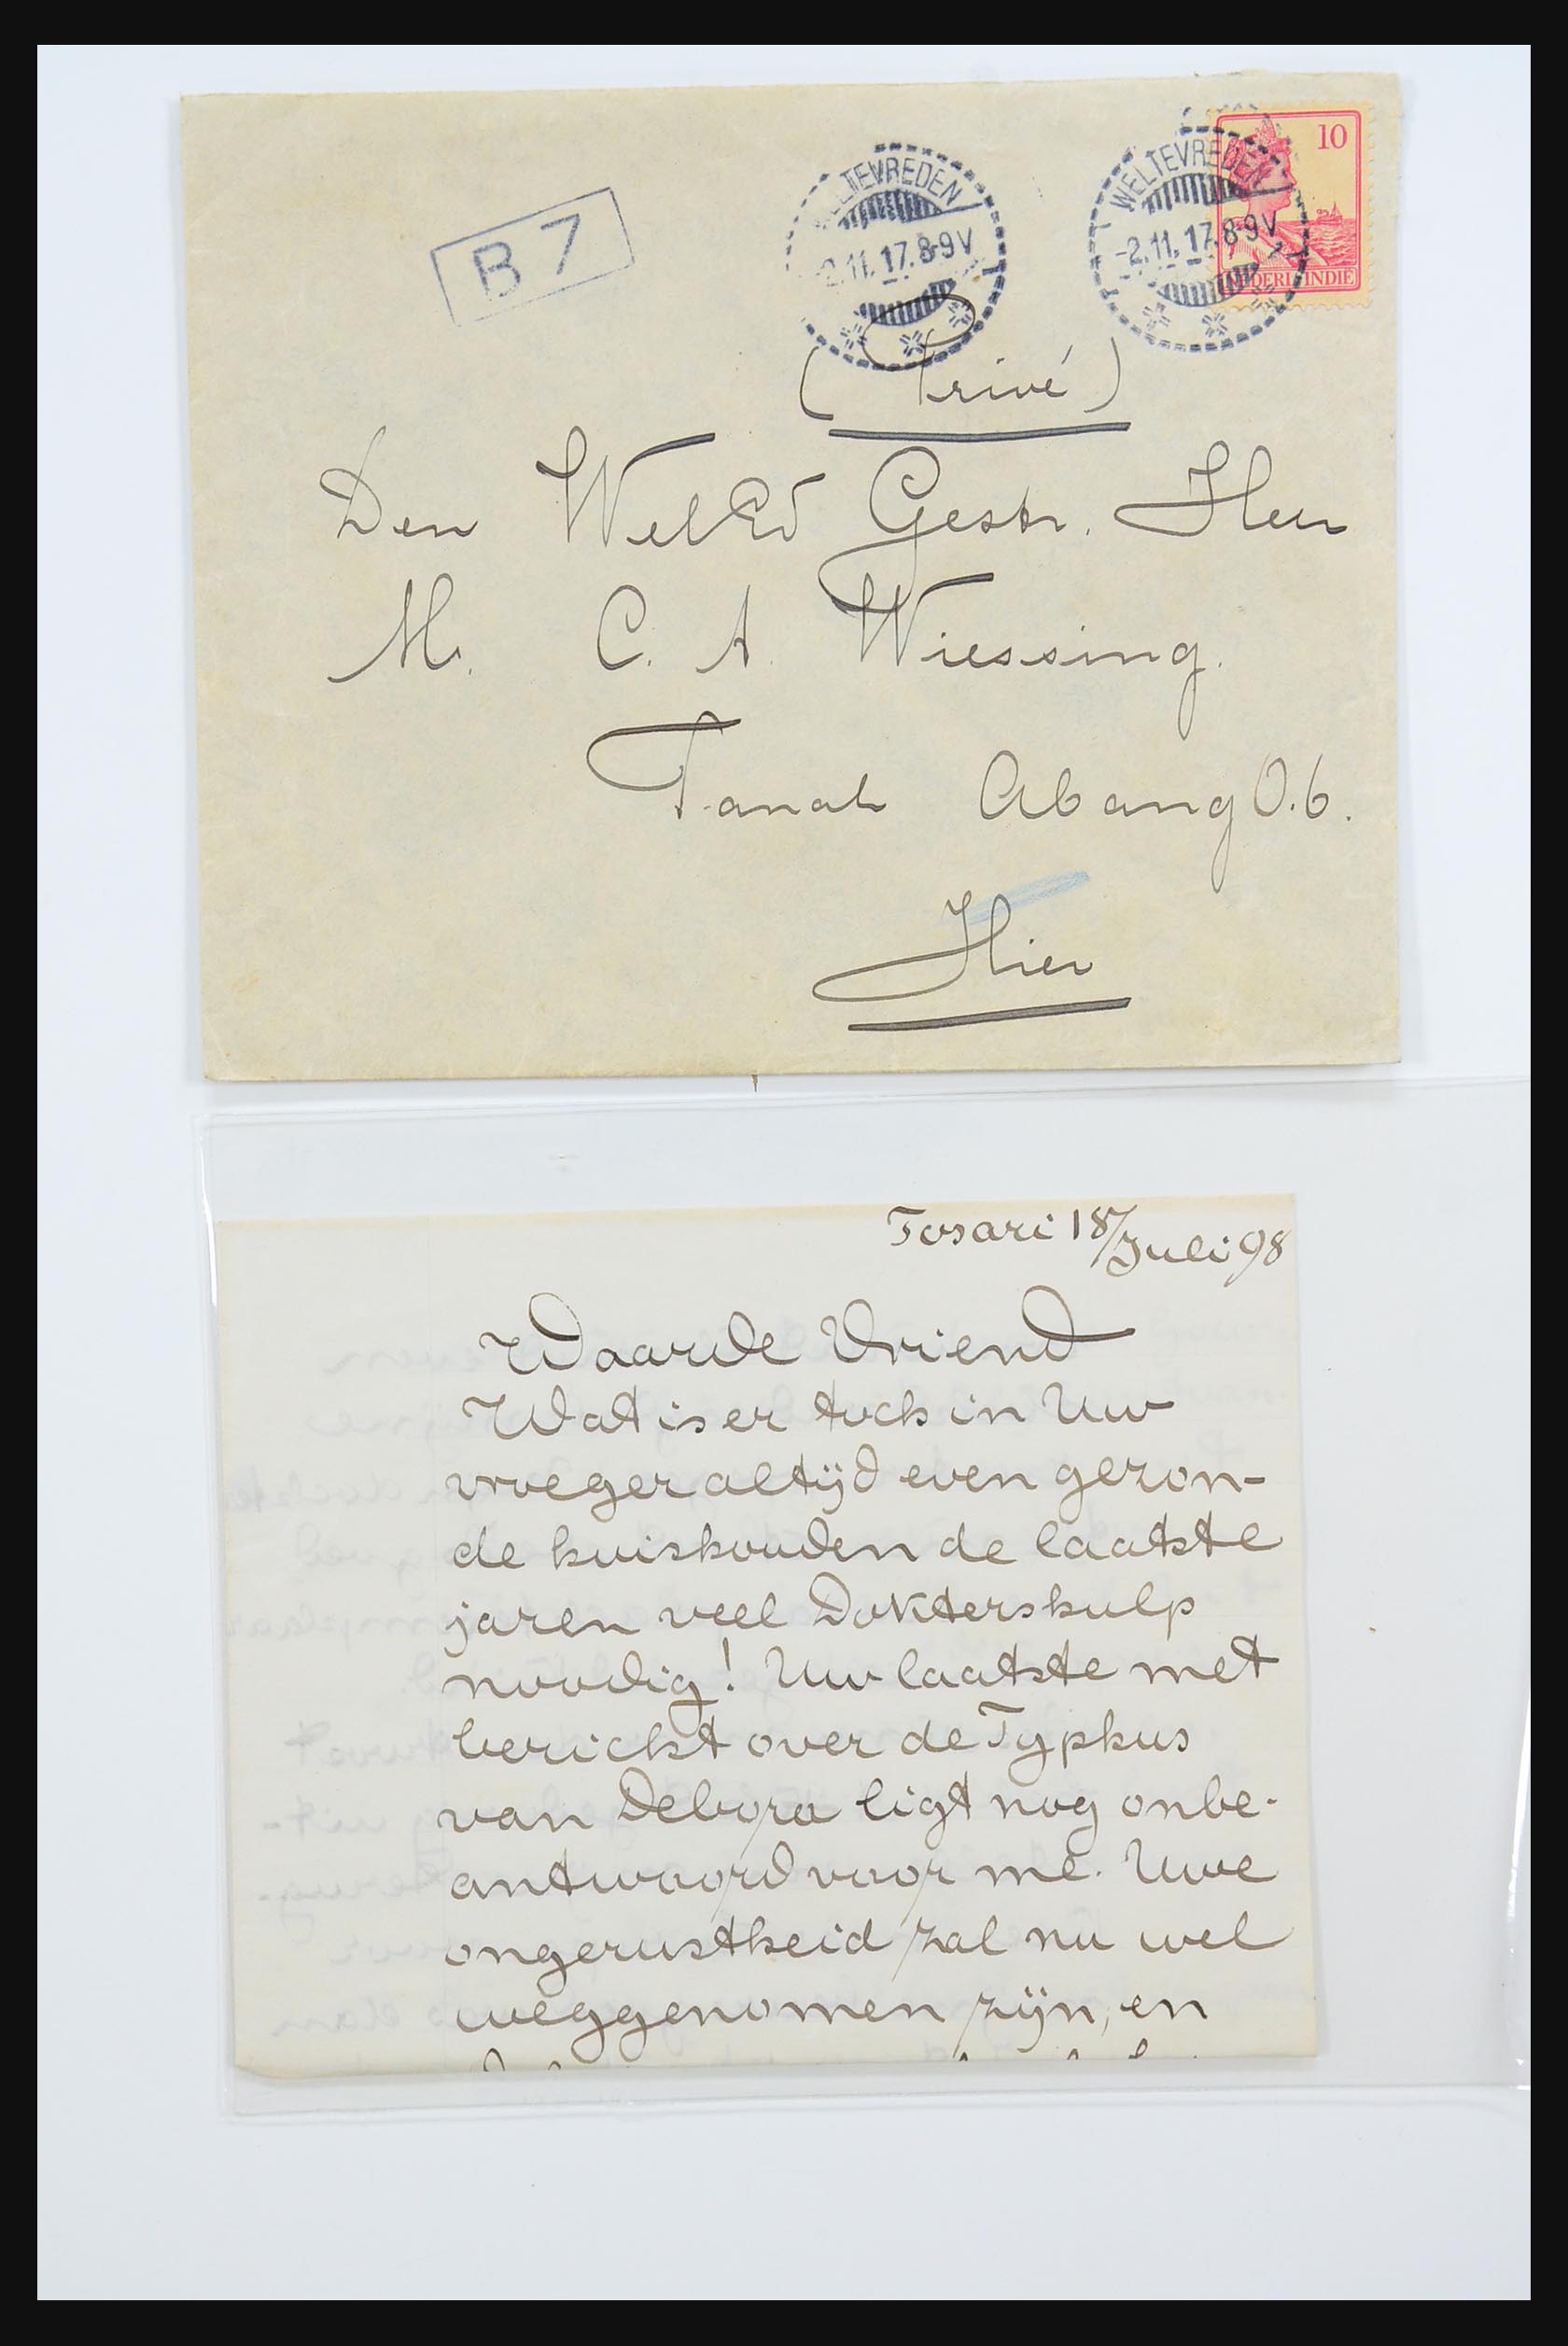 10
WELTEVREDEN
-2.11.17.8-9V
WELTEVREDEN
2.11.17.8-9V
INDIE
B 7
(Privé)
Den WelEd Gestr. Heer
Mr. C. A. Wiessing.
Tanah Abang O.6.
Hier
Tosari 18/Juli 98
Waarde Vriend
Wat is er toch in Uw
vroeger altijd even gezon-
de huishouden de laatste
jaren veel Doktershulp
noodig! Uw laatste met
bericht over de Typhus
van Debora ligt nog onbe-
antwoord voor me. Uwe
ongerustheid zal nu wel
weggenomen zijn, en